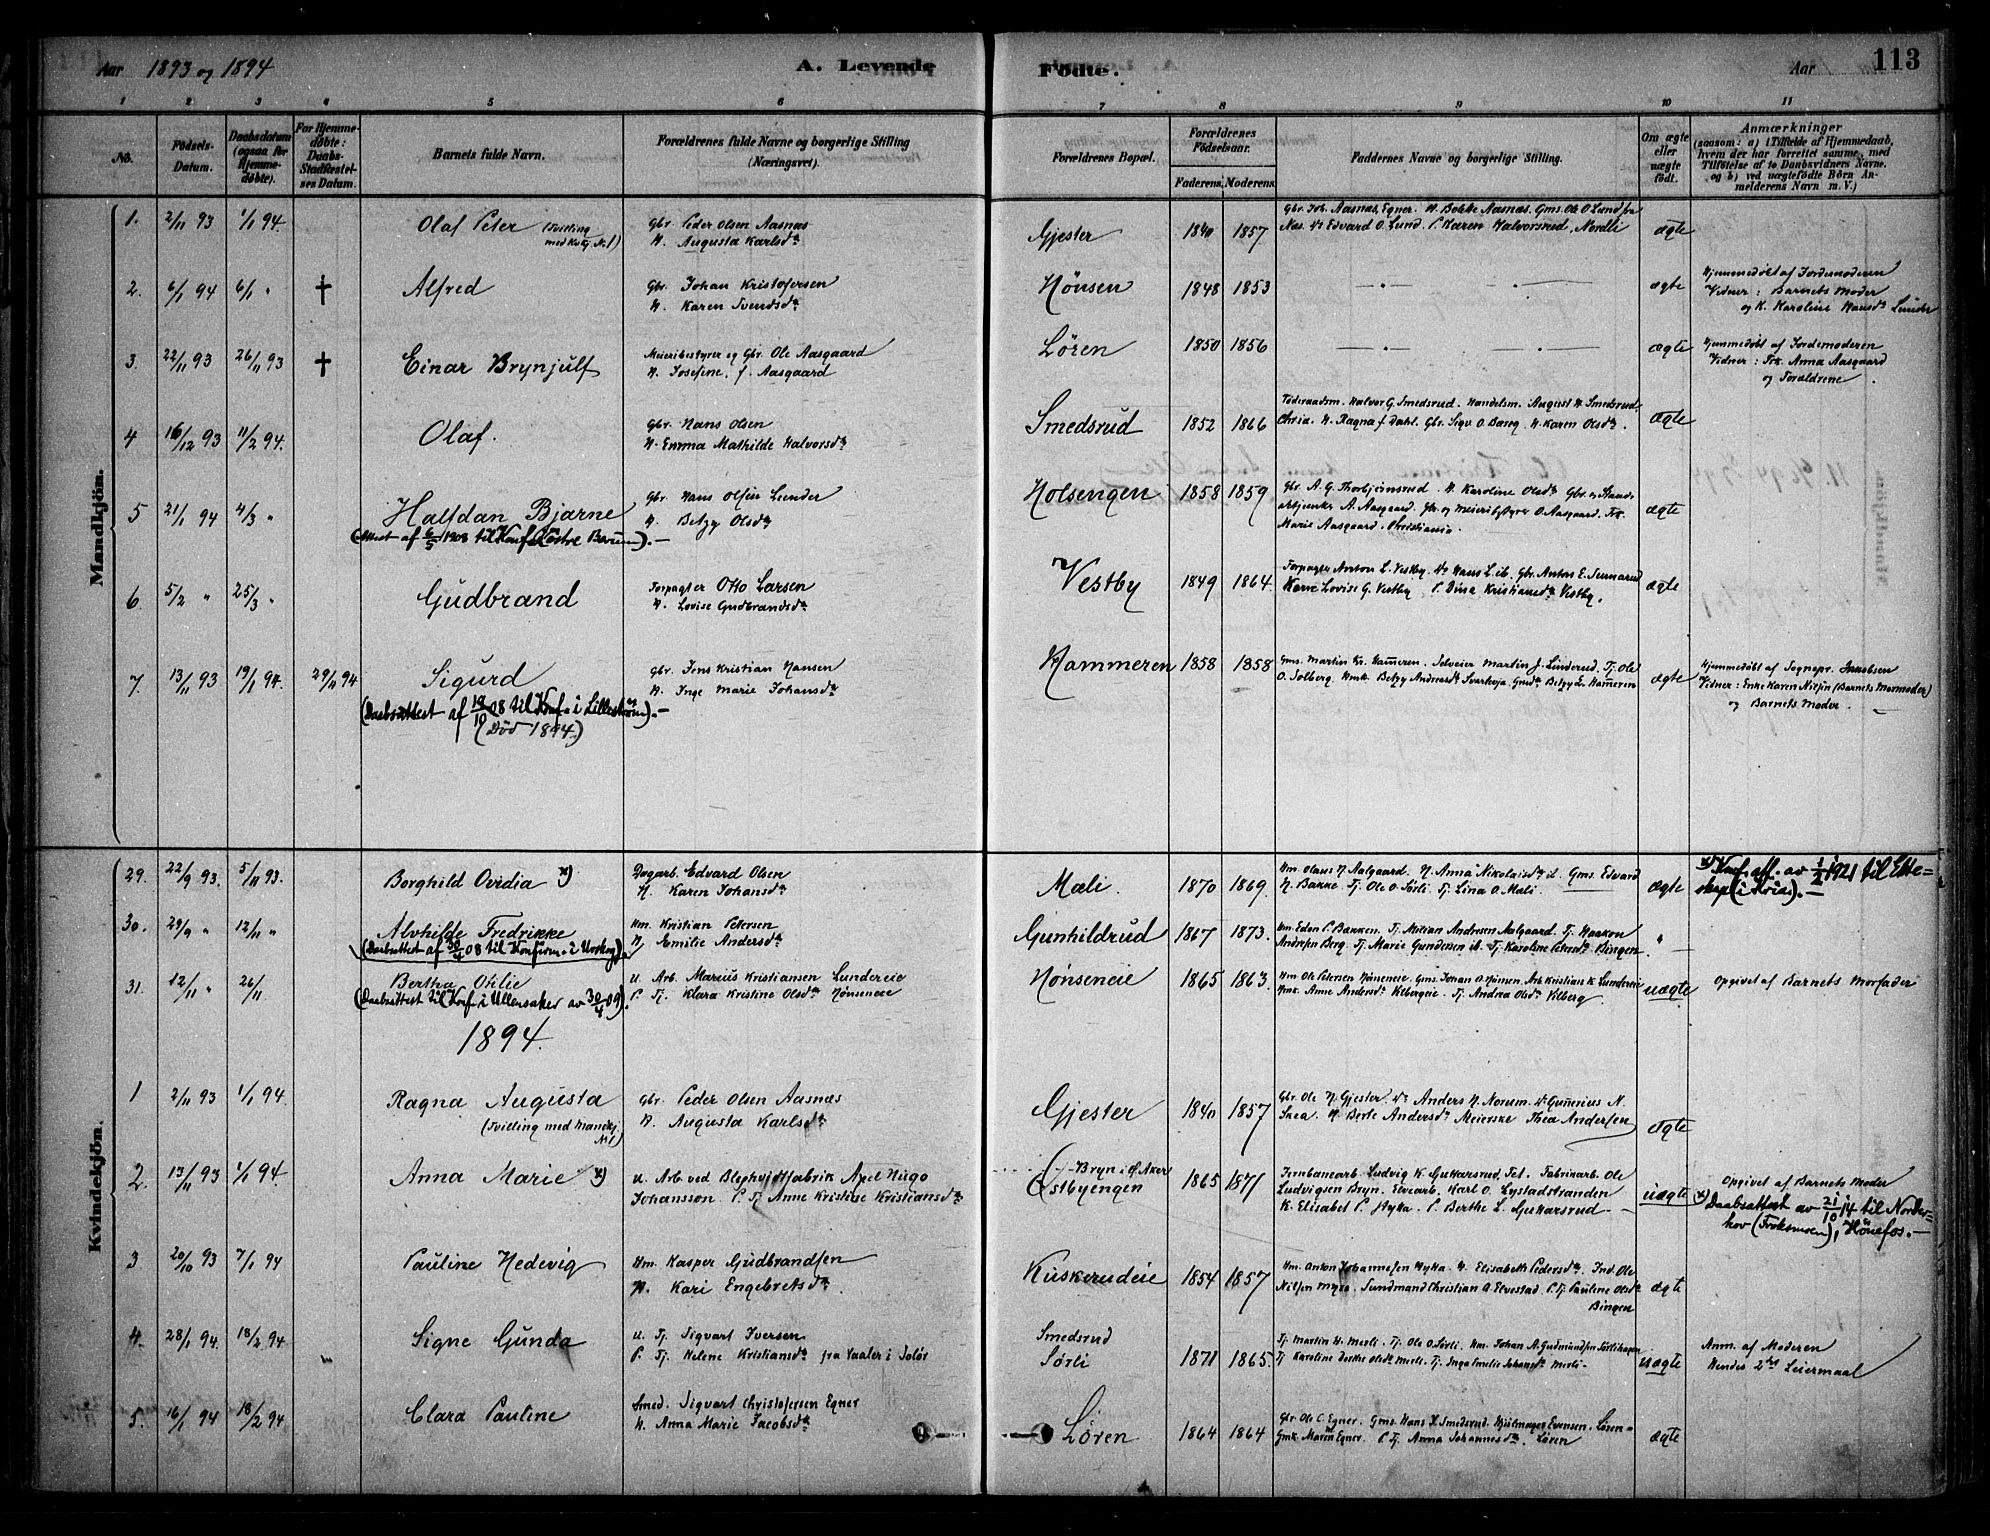 Aar 1893 og 1894
A. Levende
Fødte.
Aar
113
1 2 3 4 5 6 7 8 9 10 11
No.
Fødsels-
Datum.
Daabsdatum
(ogsaa for
Hjemme-
døbte).
For Hjemme-
døbte:
Daabs-
Stadfæstel-
ses Datum.
Barnets fulde Navn.
Forældrenes fulde Navne og borgerlige Stilling
(Næringsvei).
Forældrenes Bopæl.
Forældrenes
Fødselsaar.
Faderens. Moderens.
Faddernes Navne og borgerlige Stilling.
Om ægte
eller
uægte
født.
Anmærkninger
(saasom: a) i Tilfælde af Hjemmedaab,
hvem der har forrettet samme, med
Tilføielse af to Daabsvidners Navne.
og b) ved uægtefødte Børn An-
melderens Navn m. V.)
Mandkjøn.
1. 2/11 93 1/1 94. Olaf Peter (Tvilling
med Kvkj. No 1)
Gbr. Peder Olsen Aasnæs
H. Augusta Karlsdtr
Gjester 1840 1857
Gbr. Joh. Aasnæs, Egner. H. Bolette Aasnæs. Gms. Ole O Lund fra
Næs. Uk Edvard O. Lund. P. Karen Halvorsrud, Nordli
ægte
2. 6/1 94 6/1 " † Alfred
Gbr. Johan Kristofersen
H. Karen Svendsdtr
Hønsen 1848 1853 ægte
Hjemmedøbt af Jordemoderen
Vidner: Barnets Moder
og K. Karoline Hansdtr Lunder
3. 22/11 93 26/11 93 † Einar Brynjulf
Meieribestyrer og Gbr. Ole Aasgaard
H. Josefine, f. Aasgaard
Løren 1850 1856 ægte
Hjemmedøbt af Jordemoderen
Vidner: Frk. Anna Aasgaard
og Forældrene.
4 16/12 93 11/2 94. Olaf.
Gbr. Hans Olsen
H. Emma Mathilde Halvorsdtr
Smedsrud 1852 1866
Føderaadsm. Halvor G. Smedsrud. Handelsm. August H. Smedsrud,
Chria. H. Ragna f. Dahl. Gbr. Sigv. O. Bareg. H. Karen Olsdtr.
ægte
5 21/1 94 4/3 " Halfdan Bjarne
(Attest af 6/5 1908 til Konf. i Østre Bærum).—
Gbr. Hans Olsen Lunder
H. Betzy Olsdtr
Holsengen 1858 1859
Gbr. A. G. Thorbjørnsrud. H. Karoline Olsdtr Gbr. og Stands-
A. Aasgaard. Gbr. og Meieribestyrer O. Aasgaard. Frk.
Marie Aasgaard. Christiania.
ægte
6. 5/2 " 25/3 " Gudbrand
Forpagter Otto Larsen
H. Lovise Gudbrandsdtr
Vestby 1849 1864
Forpagter Anton L. Vestby. Uk Hans L. ib. Gbr. Anton E.
Kone Lovise G. Vestby P. Dina Kristiansdtr Vestby.
ægte
7. 13/11 93 19/1 94. 29/4 94 Sigurd
(Daabsattest af 19/10 08 til Konf. i Lillestrøm).—
(Død 1894)
Gbr. Jens Kristian Hansen
H. Inge Marie Johansdtr
Hammeren 1858 1858
Gms. Martin Kr. Hameren. Selveier Martin J. Linderud. Tj. Ole
O. Solberg. Hmk. Betzy Andreasdtr Svarkvja. Gmdtr Betzy L. Hameren
ægte
Hjemmedøbt af Sognepr. Jakobsen
Vidner: Enke Karen Nilsen (Barnets Mormoder)
og Barnets Moder.
Kvindekjøn.
29. 22/9 93. 5/11 93. Borghild Ovidia x)
Dagarb. Edvard Olsen
H. Karen Johansdtr
Mæli. 1870 1869.
Hm. Olaus N. Aalgaard. H. Anna Nikolaisdtr ib. Gms. Edvard
N. Bakke. Tj. Ole O. Sørli. Tj. Lina O. Mæli.
ægte
x) Konf. att. av 1/2 1921 til Ekte-
skap (i Kria).—
30. 29/9 " 12/11 " Alvhilde Fredrikke
(Daabsattest af 30/4 08 til Konfirm. i Urskog).
Hm. Kristian Petersen
H. Emilie Andersdtr
Gunhildrud 1867 1873.
Hm. Eden P. Bakken. Tj. Milian Andersen Aalgaard. Tj. Haakon
Andersen Berg. Tj. Marie Gundersen ib. Tj. Karoline Petersdtr Bingen.
"
31. 12/11 " 26/11 Bertha Otilie
(Daabsattest til Konf. i Ullensaker av 30/4 09).
U. Arb. Marius Kristiansen Lundereie
P. Tj. Klara Kristine Olsdtr Hønseneie
Hønseneie 1865 1863.
Hm. Ole Petersen Hønseneie. Gms. Johan O. Hønsen. Arb. Kristian K. Lundereie
Hmk. Anne Andersdtr Klbergeie. Tj. Andrea Olsdtr Klberg.
uægte
Opgivet af Barnets Morfader
1894.
1 2/11 93 1/1 94. Ragna Augusta
(Tvilling med Mandkj.
No 1)
Gbr. Peder Olsen Aasnæs
H. Augusta Karlsdtr
Gjester 1840 1857
Gbr. Ole N. Gjester. Uk Anders N. Norum. Uk Gunerius N.
Skea. H. Berte Andersdtr Meierske Thea Andersen
ægte
2. 13/11 93 1/1 94. Anna Marie x)
U. Arb. ved Blephvidtfabrik Axel Hugo
Johansson. P. Tj. Anne Kristine Kristiansdtr
Bryn i Ø. Aker
Østbyengen 1865 1871
Jernbanearb. Ludvig K. Guttarsrud Fet. Fabrikarb. Ole
Ludvigsen Bryn. Elvearb. Karl O. Lystadstranden
K. Elisabet P. Hykka. P. Berthe L. Guttarsrud.—
uægte
Opgivet af Barnets Moder
x) Daabsattest av 21/10 14 til Norder-
hov, Hønefos.—
3 20/10 93 7/1 94 Pauline Hedevig
Hm. Kasper Gudbrandsen
H. Kari Engebretsdtr.
Kuskerudeie 1854 1857
Hm. Anton Johannesen Hykka. H. Elisabeth Pedersdtr. Ind. Ole
Nilsen Myra. Sundmand Christian A. Elvestad. P. Tj. Pauline Olsdtr
Bingen
ægte
4. 28/1 94. 18/2 94 Signe Gunda
U. Tj. Sigvart Iversen
P. Tj. Helene Kristiansdtr fra Vaaler i Solør
Smedsrud
Sørli 1871 1865.
Tj. Martin H. Merli. Tj. Ole O. Sørli. Hm. Johan A. Gudmundsen Sørlihagen
Tj. Karoline Olsdtr Merli. Tj. Inga Emilie Johansdtr Merli.
uægte
Anm. af Moderen
Hendes 2det Leiermaal
5. 16/1 94 18/2 94 Clara Pauline
Smed. Sigvart Christofersen Egner
H. Anna Marie Jacobsdtr
Løren 1864 1864
Gbr. Ole C. Egner. Gms. Hans K. Smedsrud. Hjulmager Evensen. Løren-
Gmk. Maren Egner. P. Tj. Anna Johannesdtr. Løren
ægte